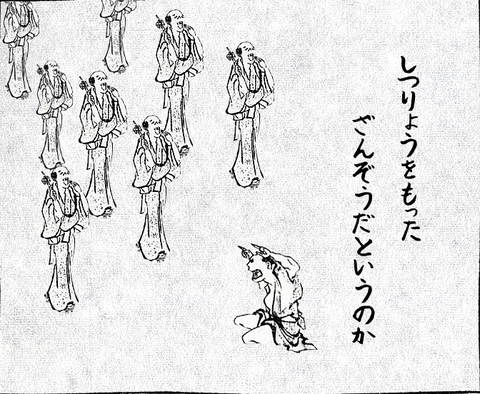 しつりょうをもった
ざんぞうだというのか